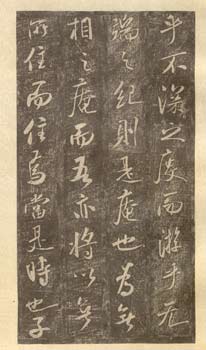 乎不淫之度而游乎无
端之紀則是庵也為無
相之庵而吾亦將以無
所住而住焉當是時也子